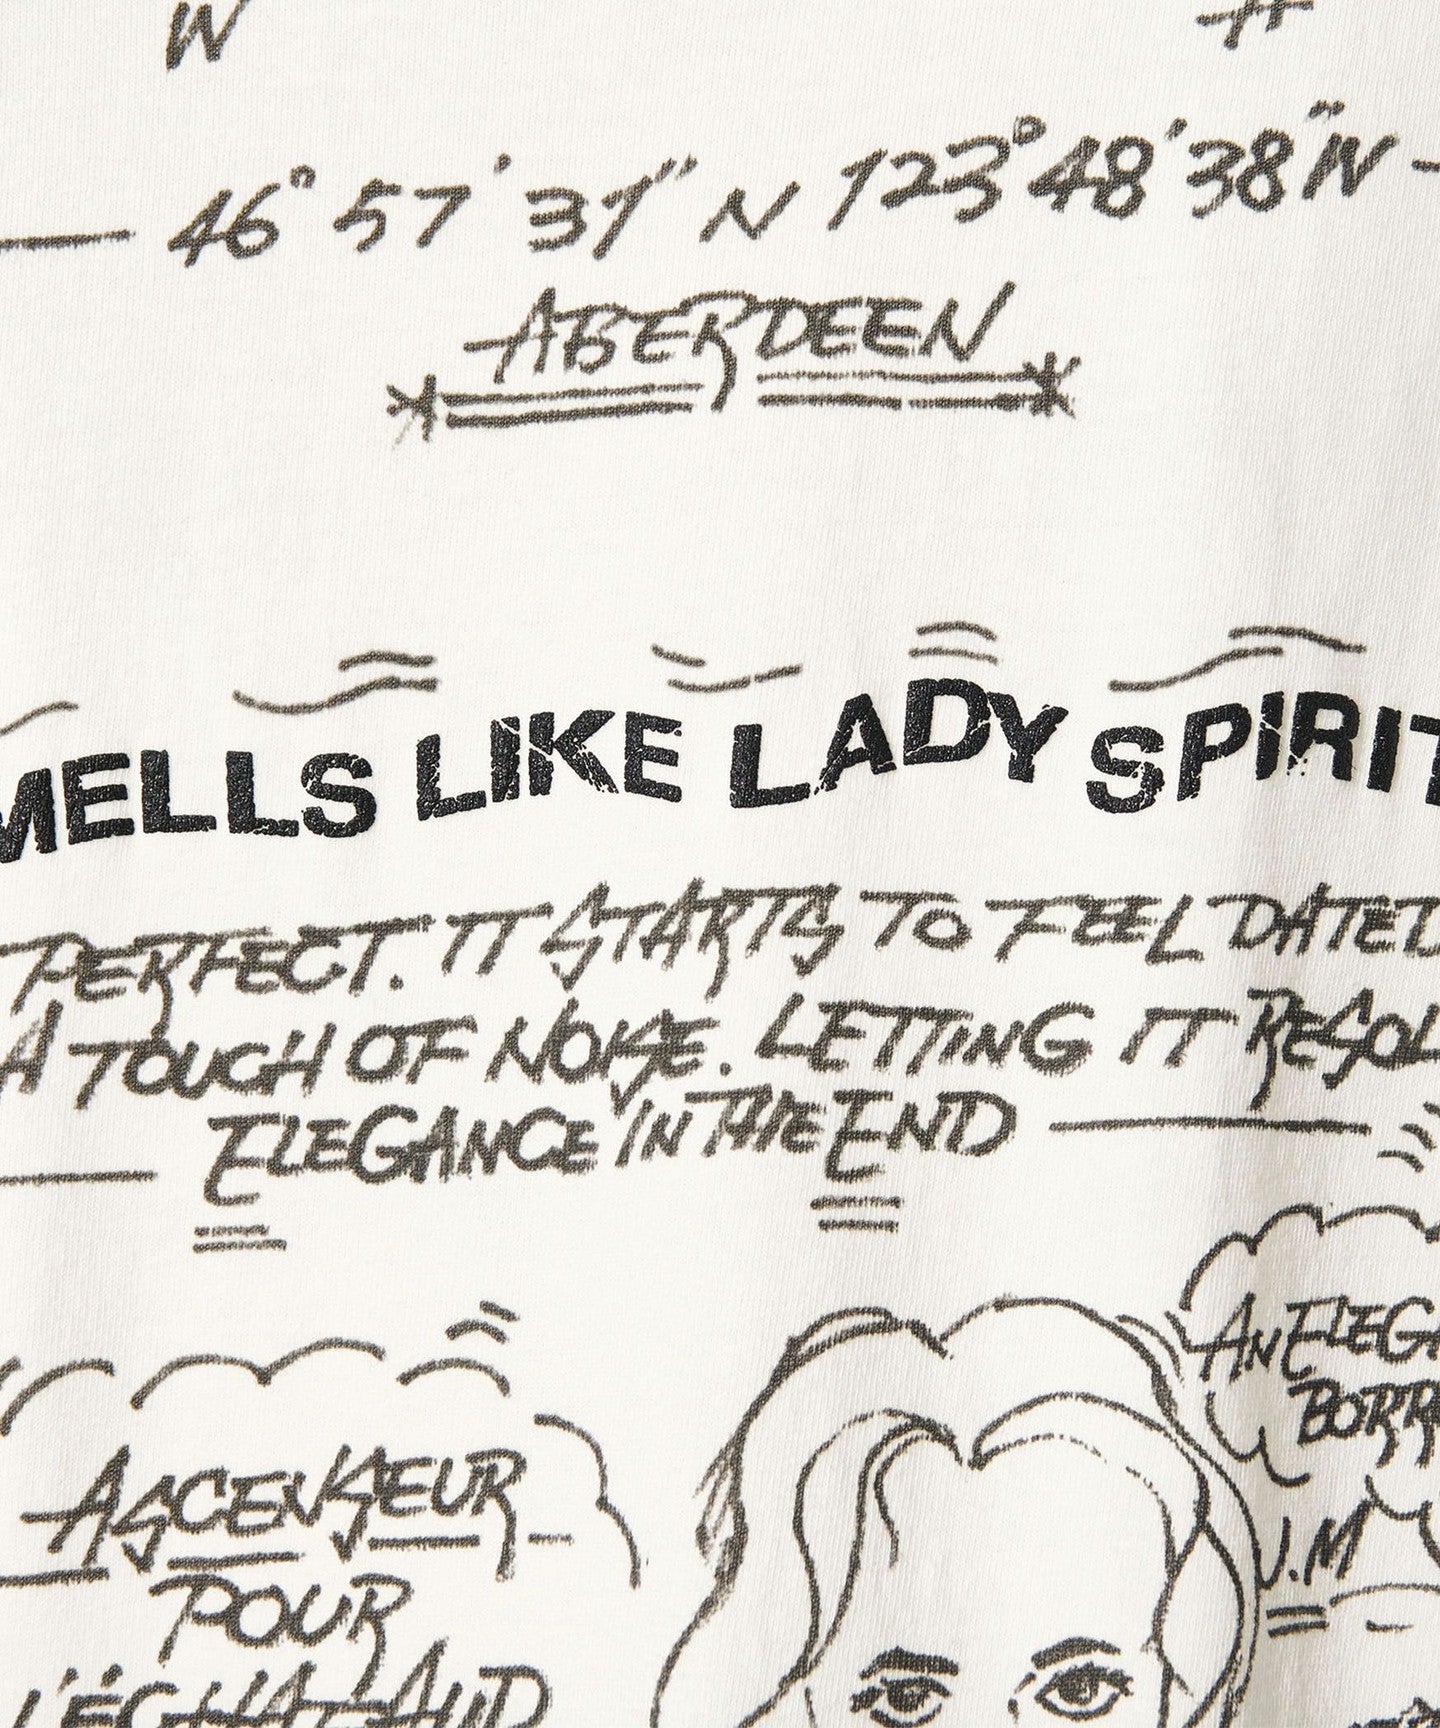 W
46° 57' 31" N 123° 48' 38" W
ABERDEEN
MELLS LIKE LADY SPIRIT
PERFECT. IT STARTS TO FEEL DATED
A TOUCH OF NOISE. LETTING IT RESOL
ELEGANCE IN THE END
AN ELEGA
BORR
J.M
ASCENSEUR
POUR
L'ÉCHAFAUD